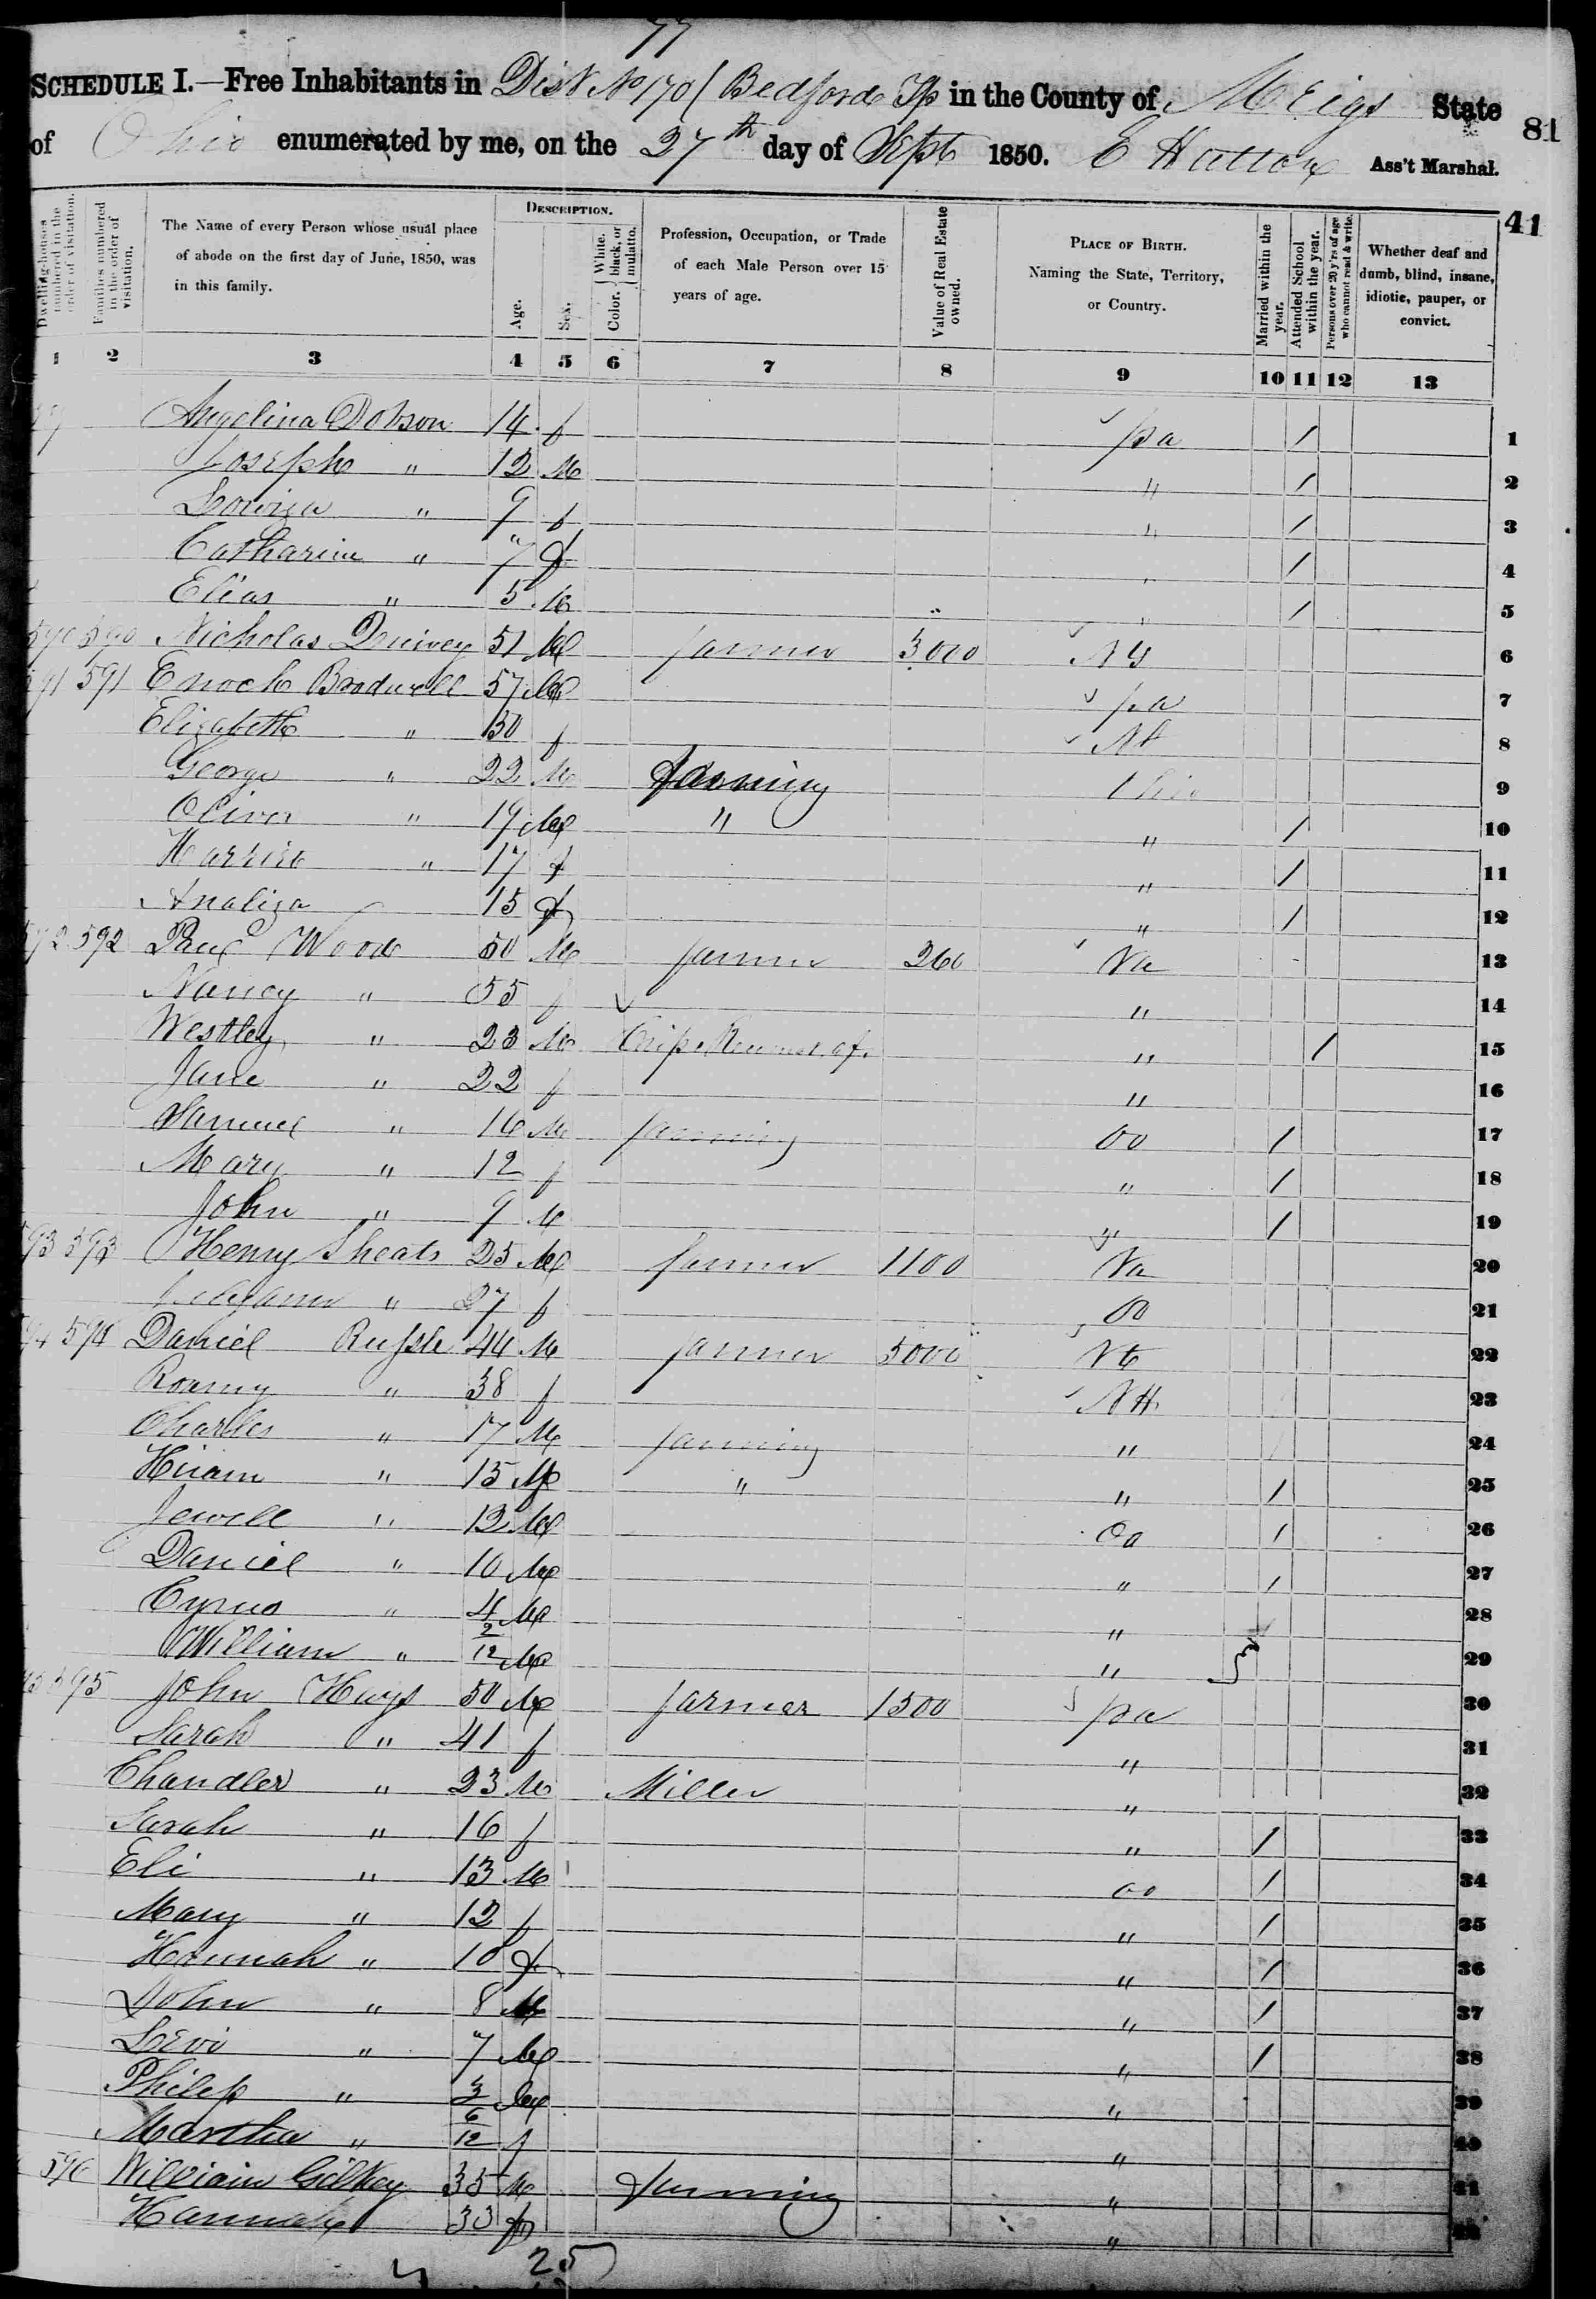 77
SCHEDULE I.—Free Inhabitants in Dist No 170 / Bedford Tp in the County of Meigs State
of Ohio enumerated by me, on the 27th day of Sept 1850. E Hatton Ass't Marshal.
81
41
Dwelling-houses numbered in the order of visitation.
Families numbered in the order of visitation.
The Name of every Person whose usual place of abode on the first day of June, 1850, was in this family.
DESCRIPTION.
Age.
Sex.
Color. { White, black, or mulatto.
Profession, Occupation, or Trade of each Male Person over 15 years of age.
Value of Real Estate owned.
PLACE OF BIRTH. Naming the State, Territory, or Country.
Married within the year.
Attended School within the year.
Persons over 20 y'rs of age who cannot read & write.
Whether deaf and dumb, blind, insane, idiotic, pauper, or convict.
1 2 3 4 5 6 7 8 9 10 11 12 13
Angelina Dobson 14 f pa / 1
Joseph " 12 M " / 2
Loviza " 9 f " / 3
Catharine " 7 f " / 4
Elias " 5 M " / 5
590 590 Nicholas 51 M farmer 3000 N Y 6
591 591 Enoch Bradwell 57 M pa 7
Elizabeth " 50 f 8
George " 22 M farming Ohio 9
Oliver " 19 M " " / 10
Harriet " 17 f " / 11
Analiza 15 f " / 12
592 592 Paul Wood 50 M farmer 260 Va 13
Nancy " 55 f " 14
Westley " 23 M " / 15
Jane " 22 f " 16
Samuel " 16 M farming Oo / 17
Mary " 12 f " / 18
John " 9 M " / 19
593 593 Henry Sheats 25 M farmer 1100 Va 20
" 27 f Oo 21
594 594 Daniel Russle 44 M farmer 5000 Vt 22
Roamy " 38 f N H 23
Charles " 17 M farming " 24
Hiram " 15 M " " / 25
Jewell " 12 M Oo / 26
Daniel " 10 M " / 27
Cyrus " 4 M " 28
William " 2/12 M " 29
595 595 John Hays 50 M farmer 1500 pa 30
Sarah " 41 f " 31
Chandler " 23 M Miller " 32
Sarah " 16 f " / 33
Eli " 13 M oo / 34
Mary " 12 f " / 35
Hannah " 10 f " / 36
John " 8 M " / 37
Levi " 7 M " / 38
Philip " 3 M " 39
Martha " 6/12 f " 40
596 William Gilkey 35 M farming " 41
Hannah 33 f " 42
25